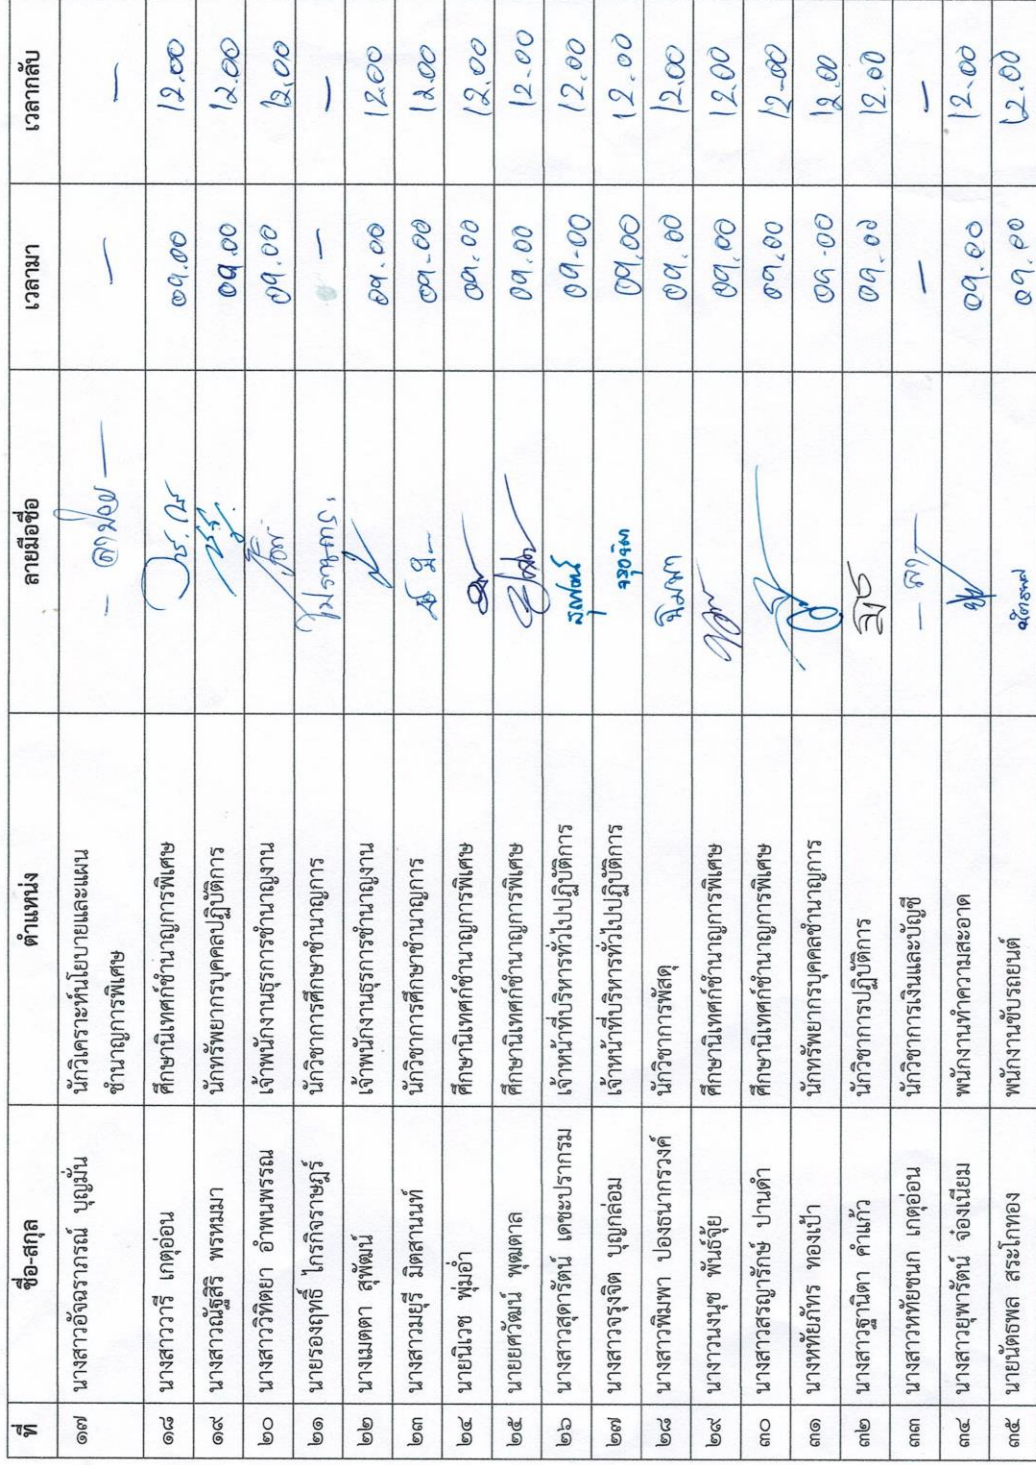 ที่ ชื่อ-สกุล ตำแหน่ง ลายมือชื่อ เวลามา เวลากลับ
๑๗ นางสาวอัจฉราภรณ์ บุญมั่น นักวิเคราะห์นโยบายและแผน - ลาป่วย - - -
ชำนาญการพิเศษ
๑๘ นางสาววารี เกตุอ่อน ศึกษานิเทศก์ชำนาญการพิเศษ 09.00 12.00
๑๙ นางสาวณัฐสิริ พรหมมา นักทรัพยากรบุคคลปฏิบัติการ 09.00 12.00
๒๐ นางสาววิทิตยา อำพนพรรณ เจ้าพนักงานธุรการชำนาญงาน 09.00 12.00
๒๑ นายรองฤทธิ์ ไกรกิจราษฎร์ นักวิชาการศึกษาชำนาญการ ไปราชการ - -
๒๒ นางเมตตา สุพัฒน์ เจ้าพนักงานธุรการชำนาญงาน 09.00 12.00
๒๓ นางสาวมยุรี มิตสานนท์ นักวิชาการศึกษาชำนาญการ 09-00 12.00
๒๔ นายนิเวช พุ่มอ่ำ ศึกษานิเทศก์ชำนาญการพิเศษ 09.00 12.00
๒๕ นายยศวัฒน์ พุฒตาล ศึกษานิเทศก์ชำนาญการพิเศษ 09.00 12-00
๒๖ นางสาวสุดารัตน์ เดชะปรากรม เจ้าหน้าที่บริหารทั่วไปปฏิบัติการ 09-00 12.00
๒๗ นางสาวจรุงจิต บุญกล่อม เจ้าหน้าที่บริหารทั่วไปปฏิบัติการ จรุงจิต 09.00 12.00
๒๘ นางสาวพิมพา ปองธนากรวงค์ นักวิชาการพัสดุ พิมพา 09.00 12.00
๒๙ นางาวนงนุช พันธ์จุ้ย ศึกษานิเทศก์ชำนาญการพิเศษ 09.00 12.00
๓๐ นางสาวสรญารักษ์ ปานดำ ศึกษานิเทศก์ชำนาญการพิเศษ 09.00 12-00
๓๑ นางหทัยภัทร ทองเป้า นักทรัพยากรบุคคลชำนาญการ 09-00 12.00
๓๒ นางสาวฐานิดา คำแก้ว นักวิชาการปฏิบัติการ 09.00 12.00
๓๓ นางสาวหทัยชนก เกตุอ่อน นักวิชาการเงินและบัญชี - ลา - - -
๓๔ นางสาวยุพารัตน์ จ๋องเนียม พนักงานทำความสะอาด 09.00 12.00
๓๕ นายนัตธพล สระโกทอง พนักงานขับรถยนต์ นัตธพล 09.00 12.00